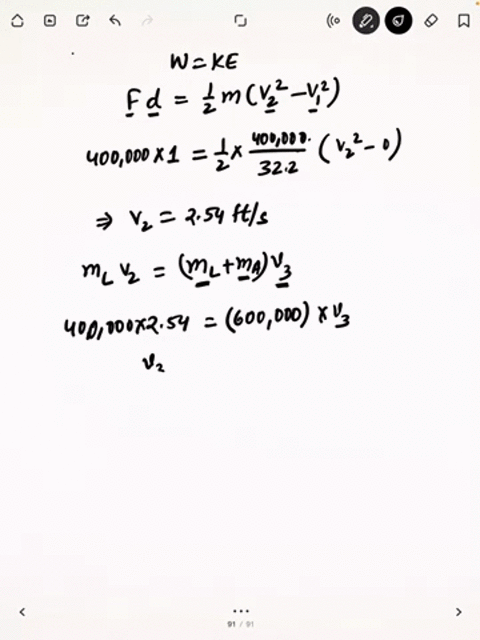 W = KE
F d = 1/2 m (v₂² - v₁²)
400,000 x 1 = 1/2 x 400,000. / 32.2 (v₂² - 0)
⇒ v₂ = 2.54 ft/s
m_L v₂ = (m_L + m_A) v₃
400,000 x 2.54 = (600,000) x v₃
v₂
91 / 91